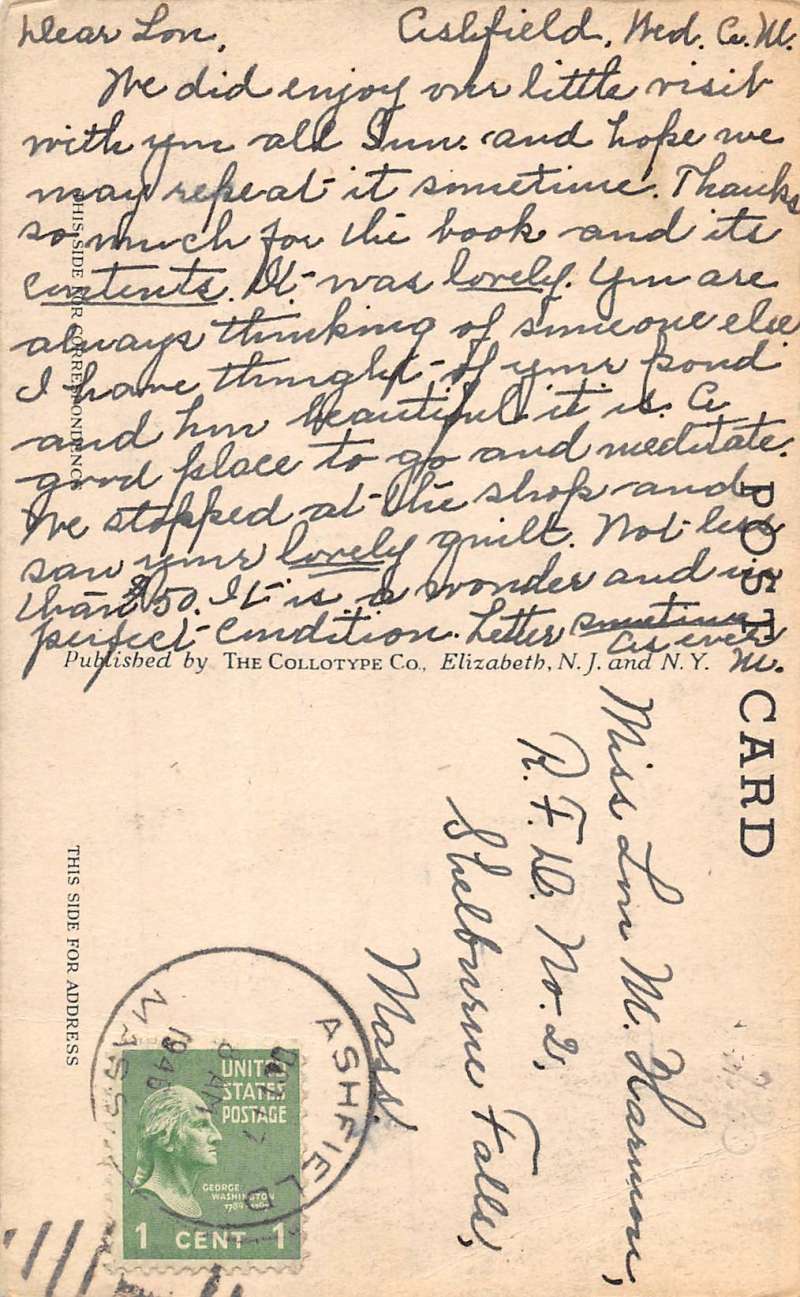 Dear Lou, Ashfield, Wed. A.M.
We did enjoy our little visit
with you all Sun. and hope we
may repeat it sometime. Thanks
so much for the book and its
contents. It was lovely. You are
always thinking of someone else
I have thought of your pond
and how beautiful it is. A
good place to go and meditate.
We stopped at the shop and
saw your lovely quilt. Not less
than $50. It is a wonder and in
perfect condition. Letter sometime
As ever
M.
Published by THE COLLOTYPE CO., Elizabeth, N. J. and N. Y.
THIS SIDE FOR CORRESPONDENCE
POST CARD
Miss Lou M. Harmon,
R. F. D. No. 2,
Shelburne Falls,
Mass.
THIS SIDE FOR ADDRESS
ASHFIELD
8 AM
MASS
UNITED
STATES
POSTAGE
GEORGE
WASHINGTON
1 CENT 1